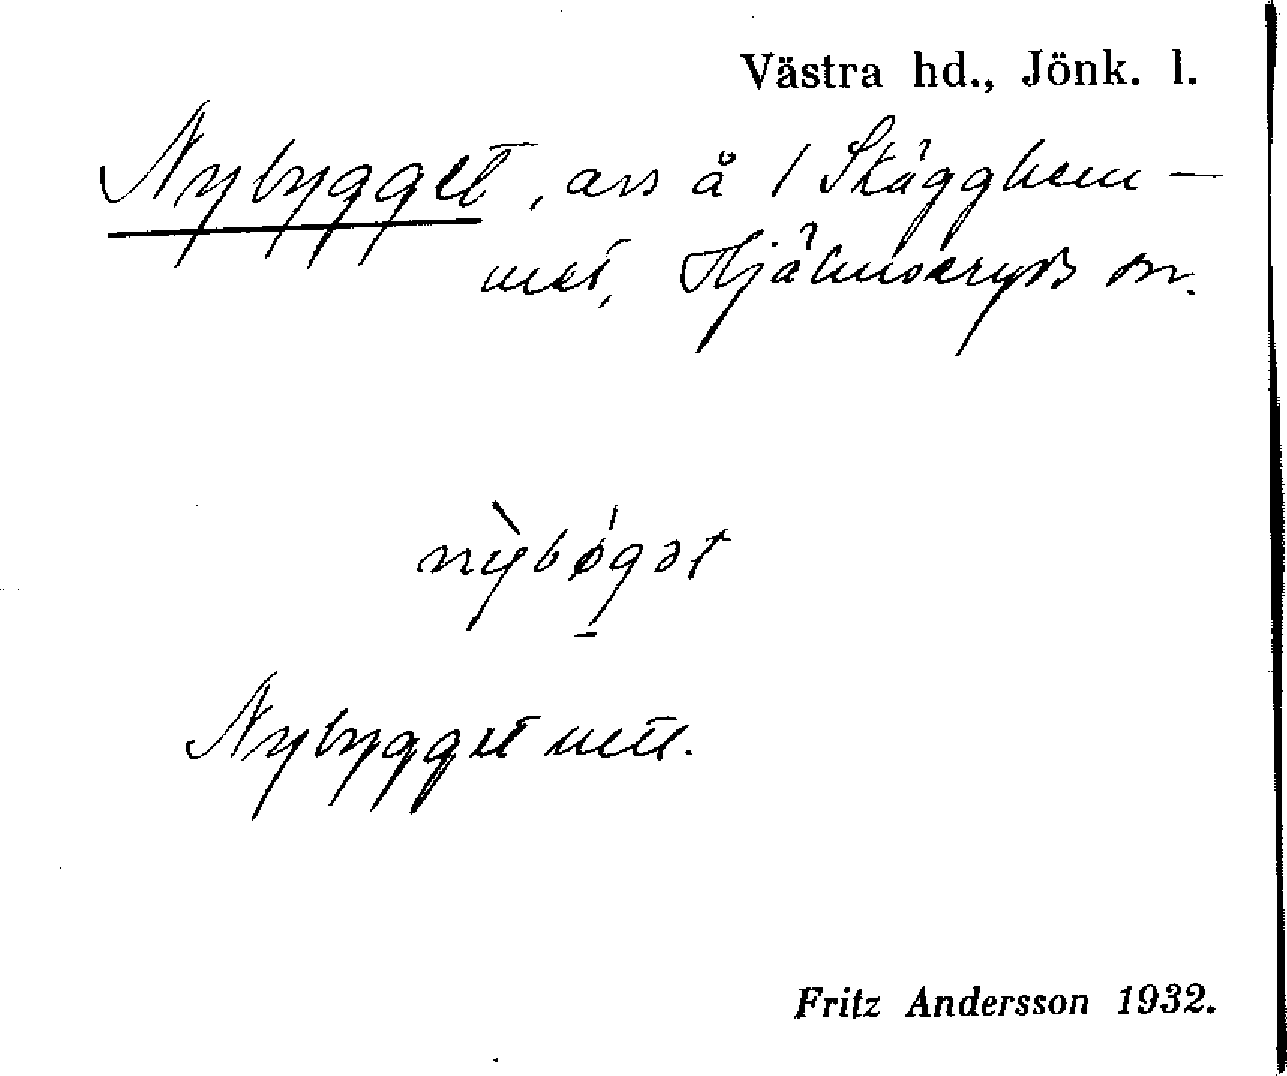 Västra hd., Jönk. l.
Nybygget, avs å 1 Skägghem-
met, Hjälmseryds sn.
nỳbǿgət
Nybygget mtl.
Fritz Andersson 1932.